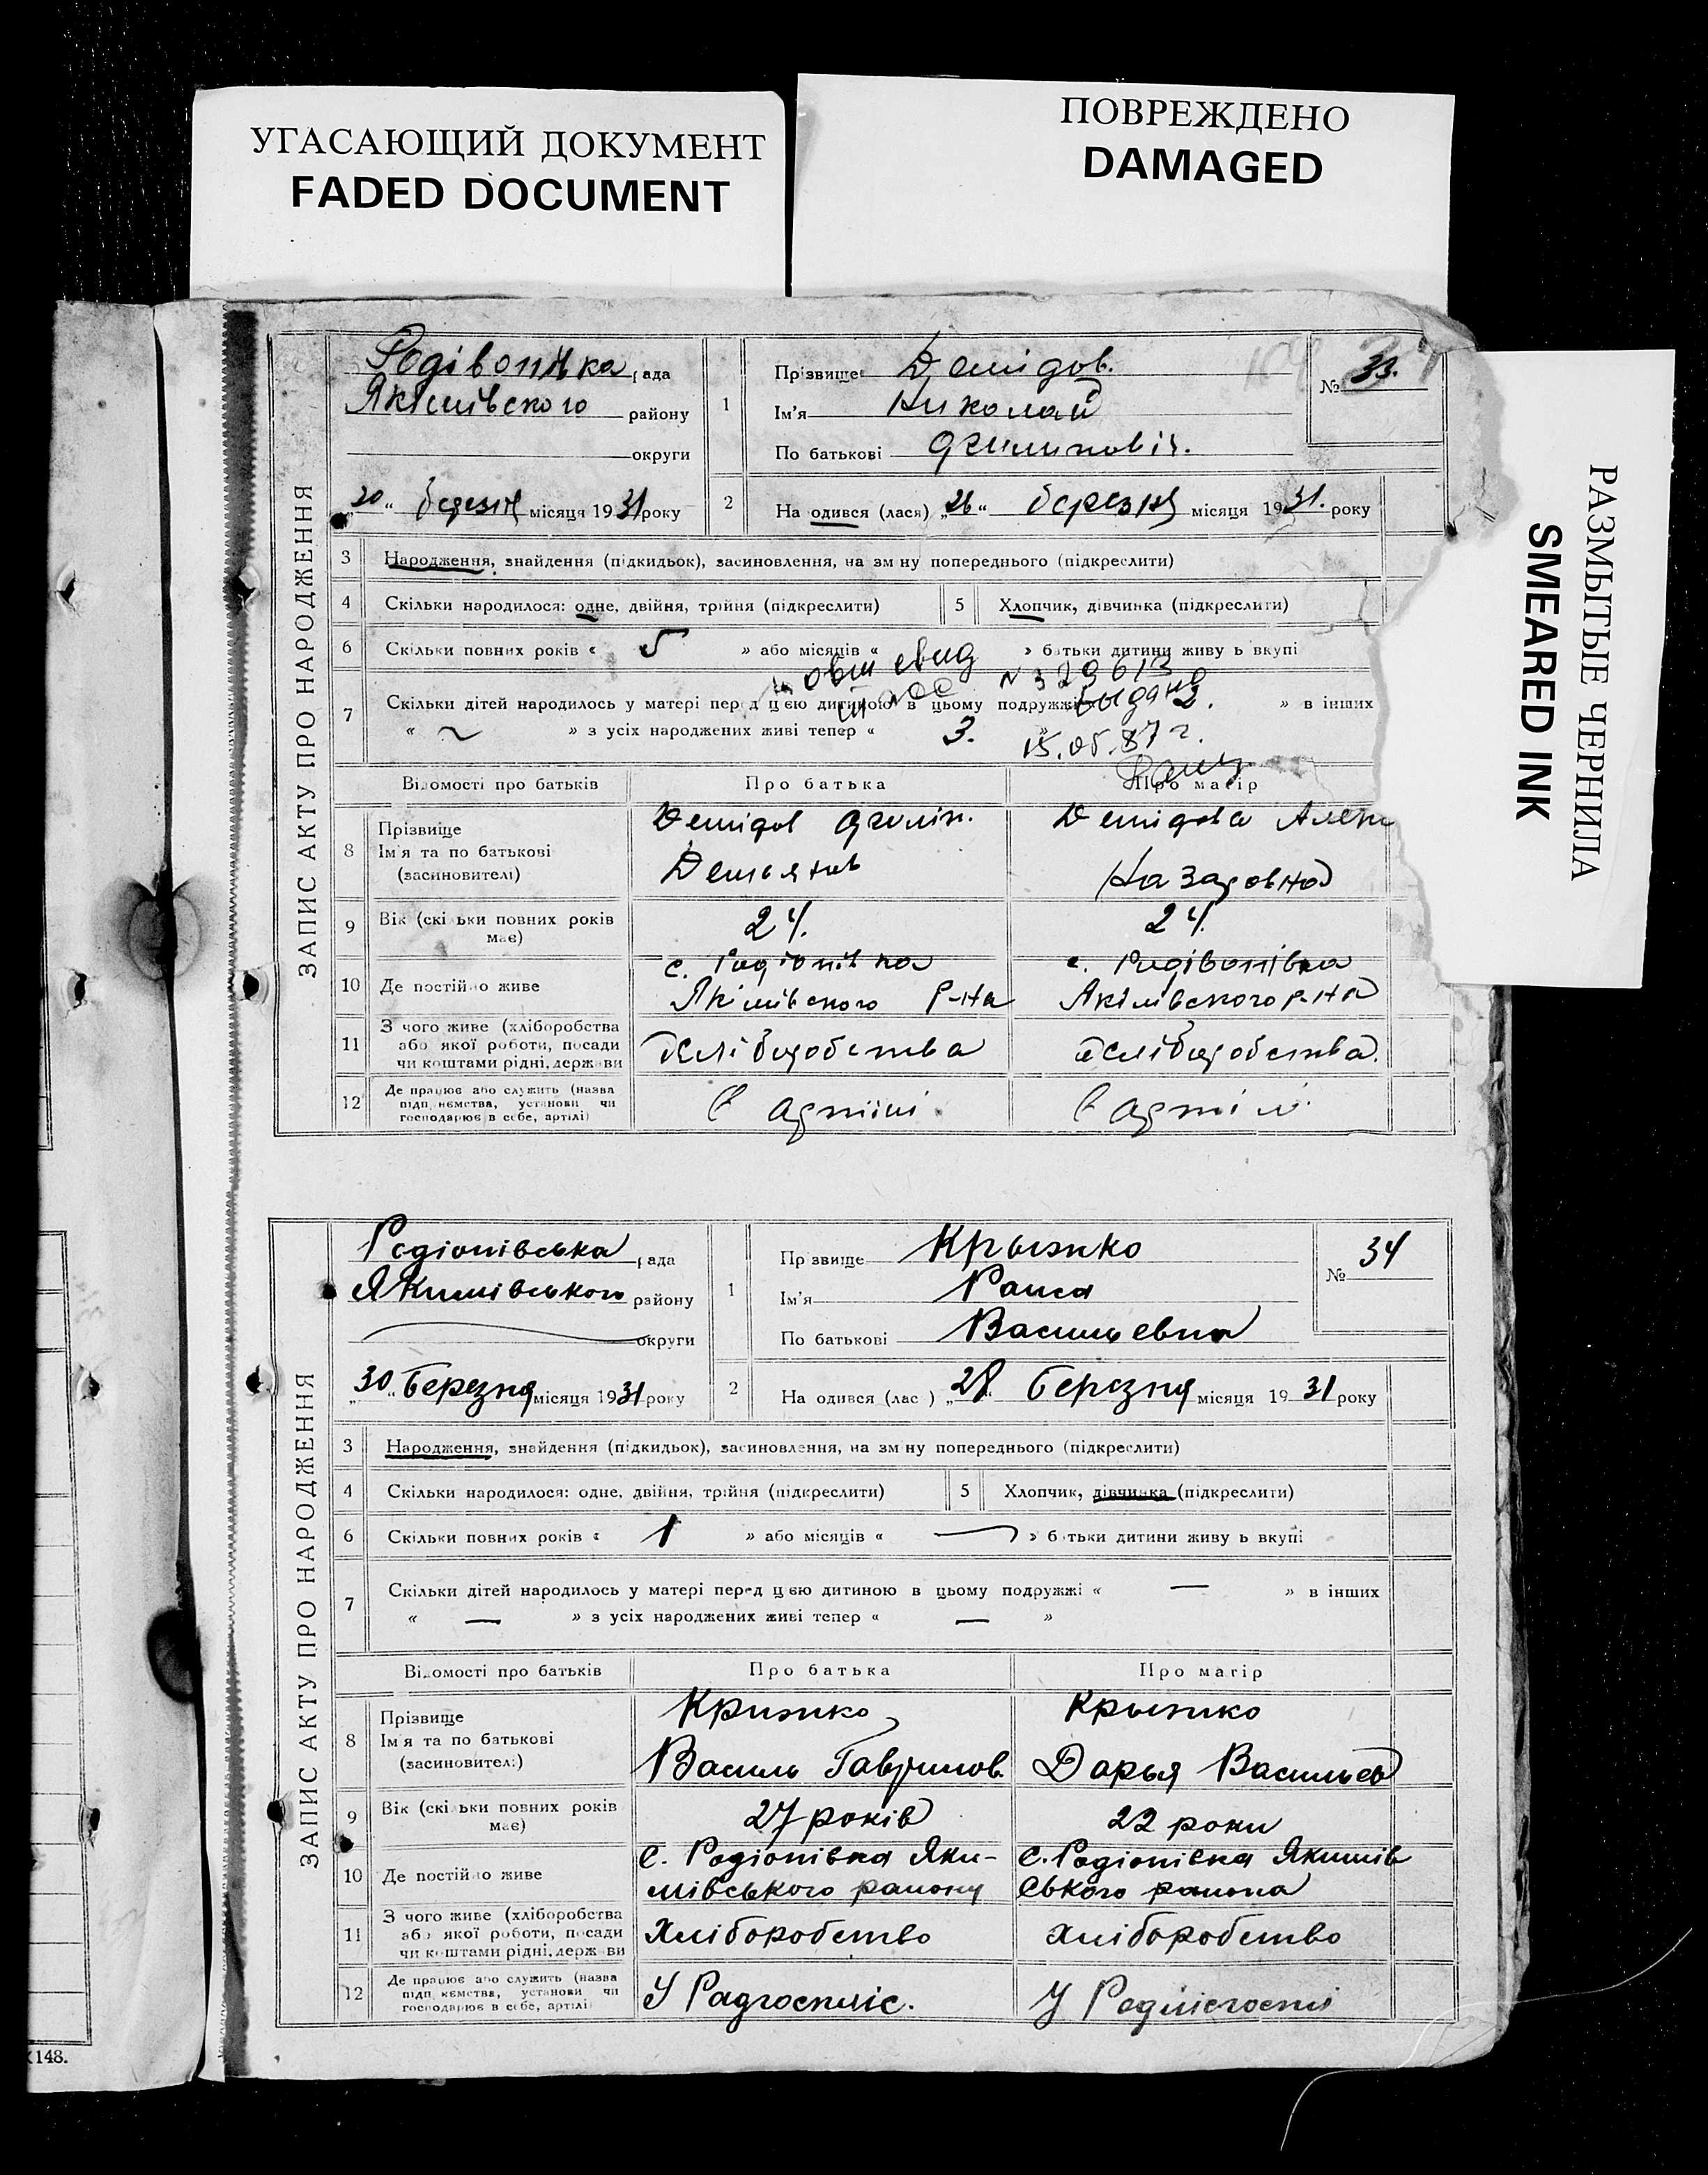 УГАСАЮЩИЙ ДОКУМЕНТ
FADED DOCUMENT
ПОВРЕЖДЕНО
DAMAGED
РАЗМЫТЫЕ ЧЕРНИЛА
SMEARED INK
ЗАПИС АКТУ ПРО НАРОДЖЕННЯ
рада
Якімівского району
округи
30 березня місяця 1931 року
1 Прізвище Демідов.
Ім'я Николай
По батькові
№ 33.
2 На одився (лася) „26“ березня місяця 1931. року
3 Народження, знайдення (підкидьок), засиновлення, на зм ну попереднього (підкреслити)
4 Скільки народилося: одне, двійня, трійня (підкреслити) 5 Хлопчик, дівчинка (підкреслити)
6 Скільки повних років « 5 » або місяців « » батьки дитини живу ь вкупі
№ 329613
7 Скільки дітей народилось у матері перед цією дитиною в цьому подружжі 2. » в інших
« ~ » з усіх народжених живі тепер « 3.
выдано
15.05.87 г.
Відомості про батьків Про батька Про матір
8 Прізвище
Ім'я та по батькові
(засиновителі)
Демідов
Демідова
Назаровна
9 Вік (скі ьки повних років має) 24. 24.
10 Де постійно живе
с. Родіонівка
Якімівского р-на
с. Родівонівка
Якімівского р-на
11 З чого живе (хліборобства
або якої роботи, посади
чи коштами рідні, держави
Хліборобства
Хліборобства.
12 Де працює або служить (назва
підприємства, установи чи
господарює в себе, артілі)
В артілі
В артілі
ЗАПИС АКТУ ПРО НАРОДЖЕННЯ
Родіонівська рада
Якимівського району
округи
30 Березня місяця 1931 року
1 Прізвище Крыжко
Ім'я Раиса
По батькові Васильевна
№ 34
2 На одився (лас ) „28“ Березня місяця 1931 року
3 Народження, знайдення (підкидьок), засиновлення, на зм ну попереднього (підкреслити)
4 Скільки народилося: одне, двійня, трійня (підкреслити) 5 Хлопчик, дівчинка (підкреслити)
6 Скільки повних років « 1 » або місяців « — » батьки дитини живу ь вкупі
7 Скільки дітей народилось у матері перед цією дитиною в цьому подружжі « — » в інших
« — » з усіх народжених живі тепер « — »
Відомості про батьків Про батька Про матір
8 Прізвище
Ім'я та по батькові
(засиновителі)
Крижко
Василь Гаврилов.
Крыжко
Дарья Васильев
9 Вік (скі ьки повних років має) 27 років 22 роки
10 Де постійно живе
С. Родіонівка Яки-
мівського району
С. Родіонівка Якимів
ського района
11 З чого живе (хліборобства
або якої роботи, посади
чи коштами рідні, держави
Хліборобство
Хліборобство
12 Де працює або служить (назва
підприємства, установи чи
господарює в себе, артілі)
У Радгоспліс.
У
148.